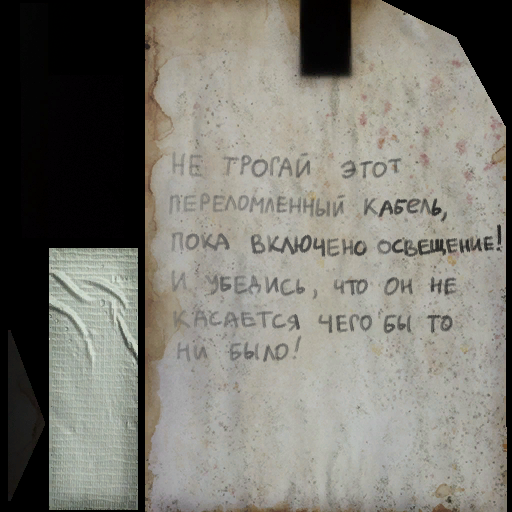 НЕ ТРОГАЙ ЭТОТ
ПЕРЕЛОМЛЕННЫЙ КАБЕЛЬ,
ПОКА ВКЛЮЧЕНО ОСВЕЩЕНИЕ!
И УБЕДИСЬ, ЧТО ОН НЕ
КАСАЕТСЯ ЧЕГО БЫ ТО
НИ БЫЛО!